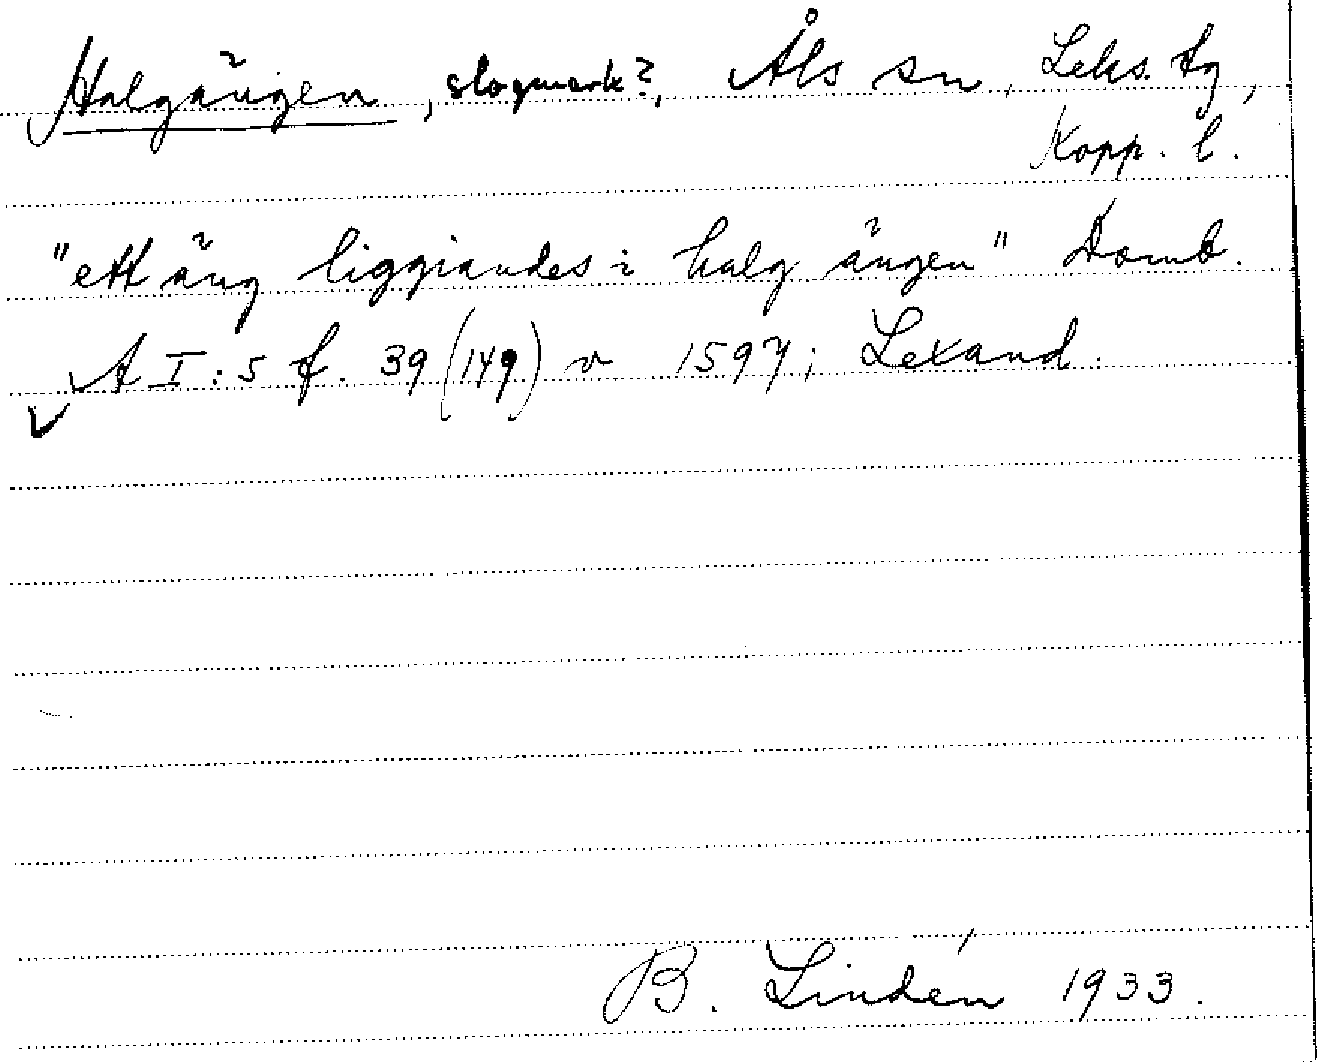 Halgängen, slogmark?, Åls sn, Leks. tg,
Kopp. l.
"ett äng liggiandes i halg ängen" Domb.
A I:5 f. 39 (149) v 1597; Lexand.
B. Lindén 1933.